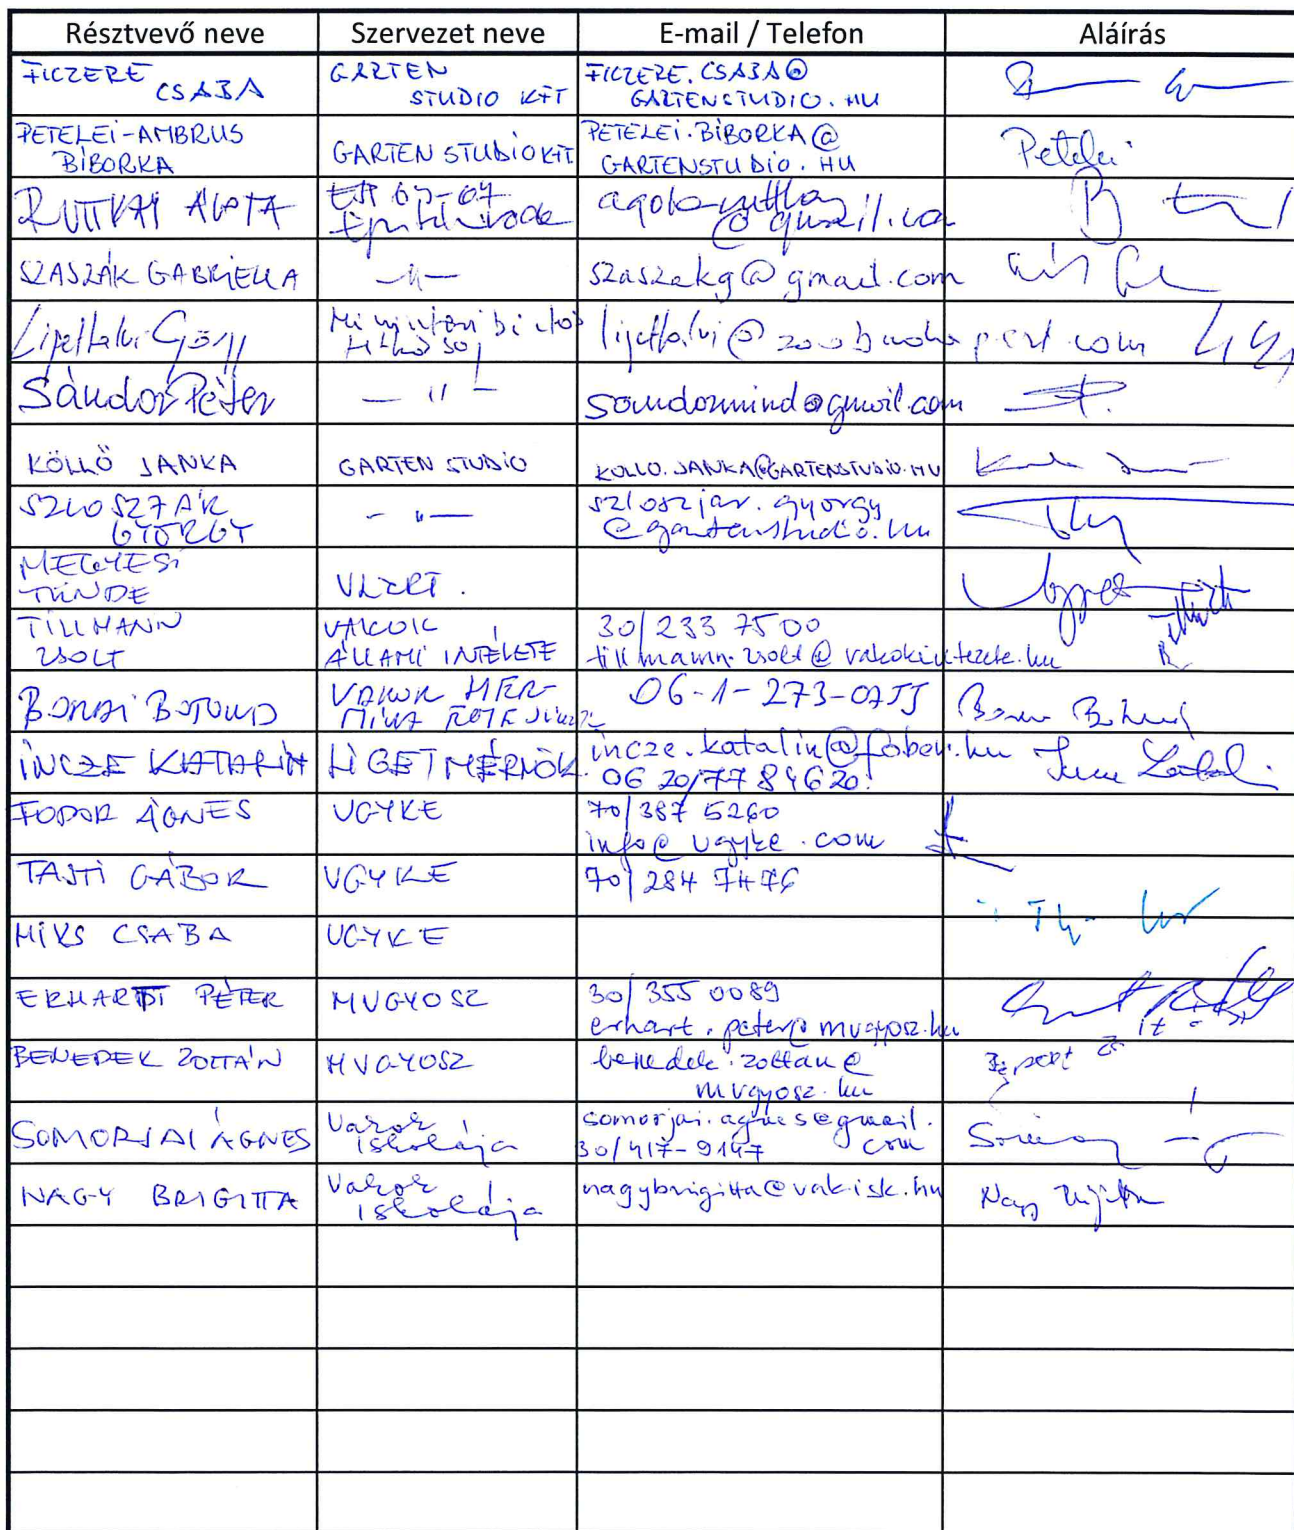 Résztvevő neve Szervezet neve E-mail / Telefon Aláírás
FICZERE CSABA GARTEN STUDIO KFT FICZERE.CSABA@GARTENSTUDIO.HU
PETELEI-AMBRUS BIBORKA GARTEN STUDIO KFT PETELEI.BIBORKA@GARTENSTUDIO.HU Petelei
RUTTKAI ÁGOTA
SZASZÁK GABRIELLA —〃— szaszakg@gmail.com
Sándor Péter —〃— sandormind@gmail.com
KÖLLŐ JANKA GARTEN STUDIO KOLLO.JANKA@GARTENSTUDIO.HU
SZLOSZJÁR GYÖRGY —〃— szloszjar.gyorgy@gartenstudio.hu
MEGYESI TÜNDE
TILLMANN ZSOLT VAKOK ÁLLAMI INTÉZETE 30/233 7500
tillmann.zsolt@vakokintezete.hu
BOTOND VAKOK 06-1-273-
INCZE KATALIN LIGETMÉRNÖK incze.katalin@
06 20/77 84 620
FODOR ÁGNES VGYKE 70/387 5260
info@vgyke.com
TAJTI GÁBOR VGYKE 70/284 7476
MIKS CSABA VGYKE
ERHART PÉTER MVGYOSZ 30/355 0089
erhart.peter@mvgyosz.hu
BENEDEK ZOLTÁN MVGYOSZ benedek.zoltan@mvgyosz.hu
SOMORJAI ÁGNES Vakok Iskolája somorjai.agnes@gmail.com
30/417-9147
NAGY BRIGITTA Vakok Iskolája nagybrigitta@vakisk.hu